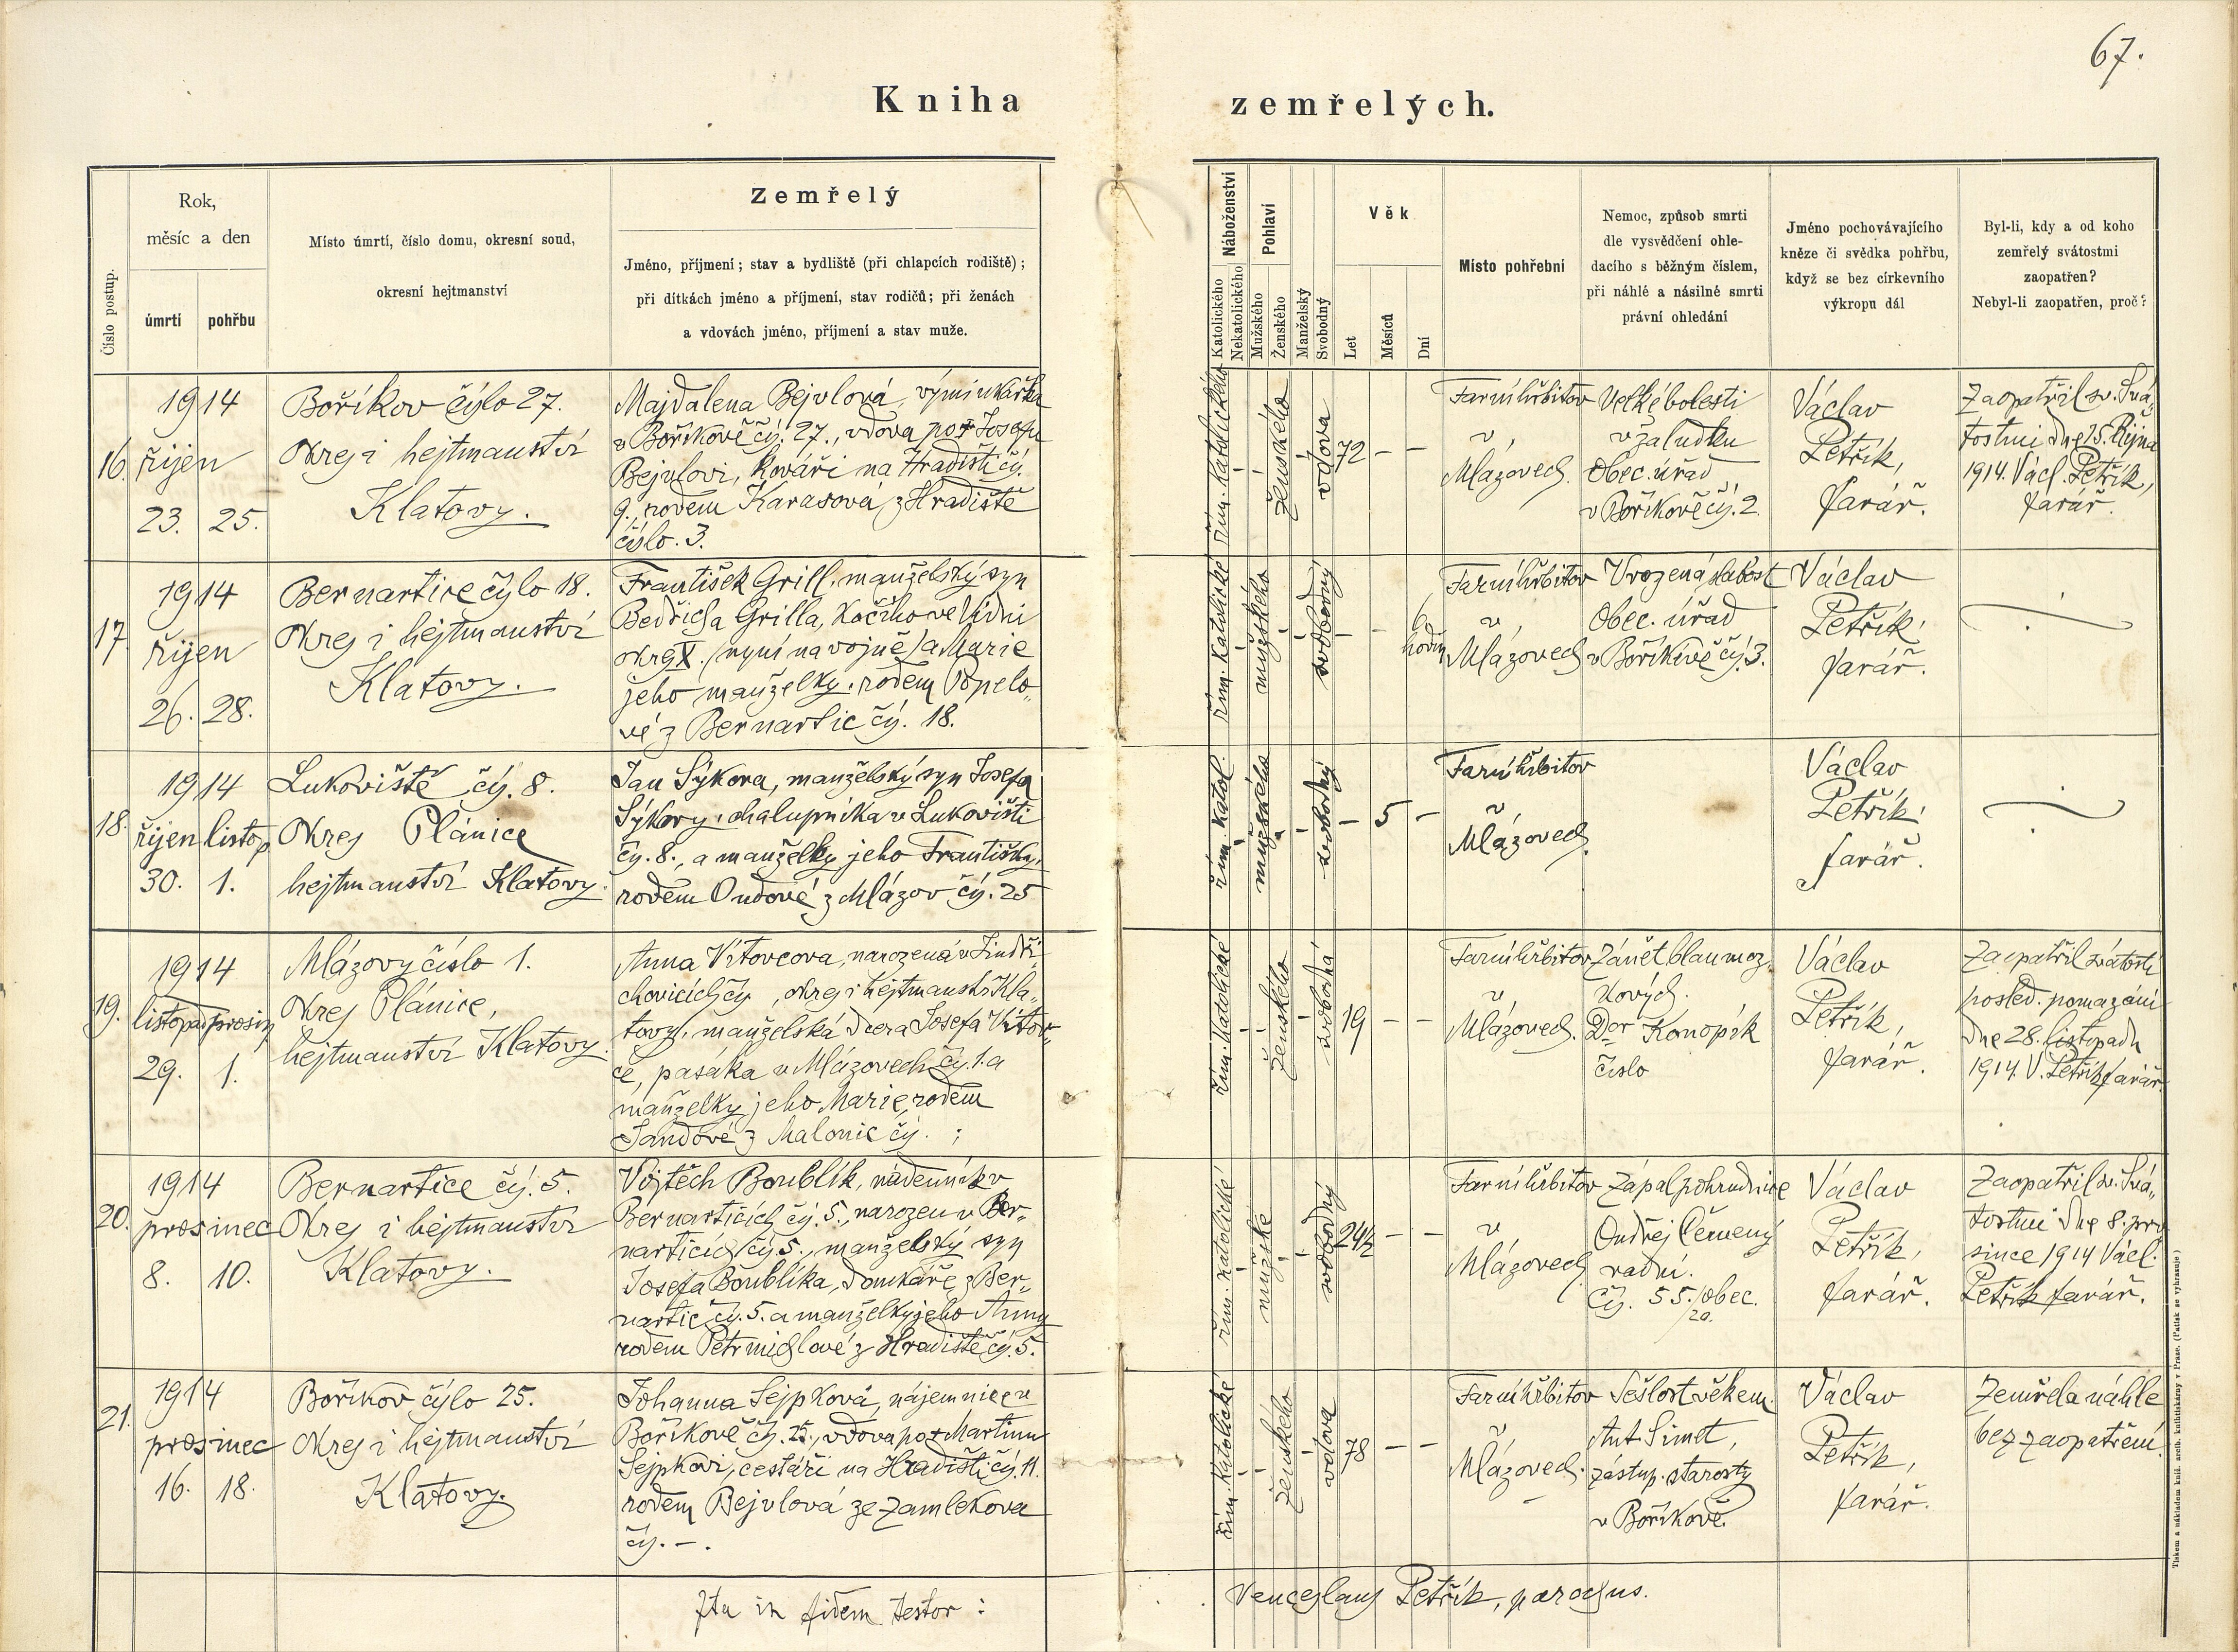 67.
Kniha zemřelých.
Číslo postup.
Rok,
měsíc a den
úmrtí
pohřbu
Místo úmrtí, číslo domu, okresní soud,
okresní hejtmanství
Zemřelý
Jméno, příjmení; stav a bydliště (při chlapcích rodiště);
při dítkách jméno a příjmení, stav rodičů; při ženách
a vdovách jméno, příjmení a stav muže.
Náboženství
Katolického
Nekatolického
Pohlaví
Mužského
Ženského
Manželský
Svobodný
Věk
Let
Měsíců
Dní
Místo pohřební
Nemoc, způsob smrti
dle vysvědčení ohle-
dacího s běžným číslem,
při náhlé a násilné smrti
právní ohledání
Jméno pochovávajícího
kněze či svědka pohřbu,
když se bez církevního
výkropu dál
Byl-li, kdy a od koho
zemřelý svátostmi
zaopatřen?
Nebyl-li zaopatřen, proč?
16.
1914
říjen
23. 25.
Boříkov číslo 27.
Okres i hejtmanství
Klatovy.
Majdalena Bejvlová, výminkářka
v Boříkově čís. 27., vdova po † Josefu
Bejvlovi, kováři na Hradišti čís.
9., rodem Karasová z Hradiště
číslo. 3.
řím. katolického
ženského
vdova
72 – –
Farní hřbitov
v
Mlázovech.
Velké bolesti
v žaludku
Obec. úřad
v Boříkově čj. 2
Václav
Petřík,
farář.
Zaopatřil sv. Svá-
tostmi dne 15. Října
1914. Václ. Petřík,
farář.
17.
1914
říjen
26. 28.
Bernartice číslo 18.
Okres i hejtmanství
Klatovy.
František Grill, manželský syn
Bedřicha Grilla, kočího ve Vídni
okres X. (nyní na vojně) a Marie
jeho manželky, rodem Popelo-
vé z Bernartic čís. 18.
řím. katolické
mužského
svobodný
– – 6 hodin
Farní hřbitov
v
Mlázovech
Vrozená slabost
Obec. úřad
v Boříkově čj. 3.
Václav
Petřík,
farář.
18.
1914
říjen listop.
30. 1.
Lukoviště čís. 8.
Okres Plánice
hejtmanství Klatovy.
Jan Sýkora, manželský syn Josefa
Sýkory, chalupníka v Lukovišti
čís. 8., a manželky jeho Františky,
rodem Ondové z Mlázov čís. 25
řím. katol.
mužského
svobodný
– 5 –
Farní hřbitov
v
Mlázovech.
Václav
Petřík,
farář.
19.
1914
listopad prosin.
29. 1.
Mlázovy číslo 1.
Okres Plánice,
hejtmanství Klatovy.
Anna Vítovcova, narozená v Jindři-
chovicích čís. , okres i hejtmanst. Kla-
tovy, manželská dcera Josefa Vítov-
ce, pasáka v Mlázovech čís. 1. a
manželky jeho Marie, rodem
Jandové z Malonic čís. ;
řím. katolické
ženského
svobodná
19 – –
Farní hřbitov
v
Mlázovech.
Zánět blan moz-
kových.
Dor Konopík
číslo
Václav
Petřík,
farář.
Zaopatřil svátostí
posled. pomazání
dne 28. listopadu
1914. V. Petřík farář.
20.
1914
prosinec
8. 10.
Bernartice čís. 5.
Okres i hejtmanství
Klatovy.
Vojtěch Boublík, nádenník v
Bernarticích čís. 5., narozen v Ber-
narticích čís. 5., manželský syn
Josefa Boublíka, domkáře z Ber-
nartic čís. 5. a manželky jeho Anny
rodem Petrmichlové z Hradiště čís. 5.
řím. katolické
mužské
svobodný
24½ – –
Farní hřbitov
v
Mlázovech
Zápal pohrudnice
Ondřej Červený
radní.
Čís. 55./obec.
/20.
Václav
Petřík,
farář.
Zaopatřil sv. Svá-
tostmi dne 8. pro
since 1914 Václ.
Petřík farář.
21.
1914
prosinec
16. 18.
Boříkov číslo 25.
Okres i hejtmanství
Klatovy.
Johanna Sejpková, nájemnice v
Boříkově čís. 25., vdova po † Martinu
Sejpkovi, cestáři na Hradišti čís. 11.
rodem Bejvlová ze Zamlekova
čís. –.
řím. katolické
ženského
vdova
78 – –
Farní hřbitov
v
Mlázovech.
Sešlost věkem.
Ant. Simet,
zástup. starosty
v Boříkově.
Václav
Petřík,
farář.
Zemřela náhle
bez zaopatření
Ita in fidem testor: Venceslaus Petřík, parochus.
Tiskem a nákladem kníž. arcib. knihtiskárny v Praze. (Patisk se vyhrazuje)